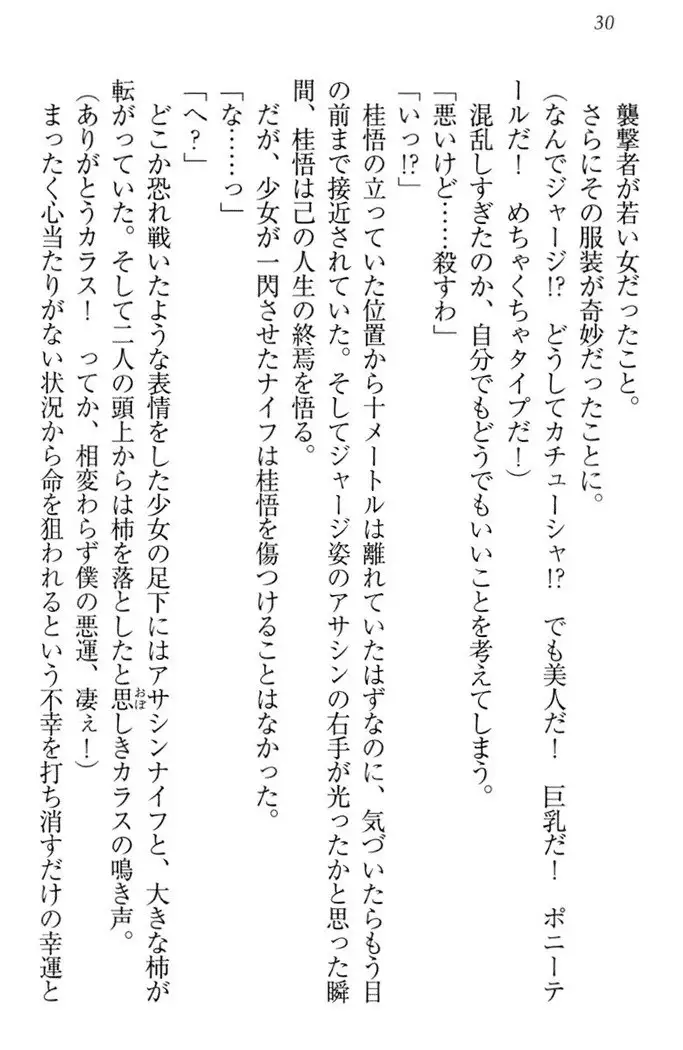 30
襲撃者が若い女だったこと。
さらにその服装が奇妙だったことに。
(なんでジャージ!?　どうしてカチューシャ!?　でも美人だ！　巨乳だ！　ポニーテ
ールだ！　めちゃくちゃタイプだ！)
混乱しすぎたのか、自分でもどうでもいいことを考えてしまう。
「悪いけど……殺すわ」
「いっ!?」
桂悟の立っていた位置から十メートルは離れていたはずなのに、気づいたらもう目
の前まで接近されていた。そしてジャージ姿のアサシンの右手が光ったかと思った瞬
間、桂悟は己の人生の終焉を悟る。
だが、少女が一閃させたナイフは桂悟を傷つけることはなかった。
「な……っ」
「へ？」
どこか恐れ戦いたような表情をした少女の足下にはアサシンナイフと、大きな柿が
転がっていた。そして二人の頭上からは柿を落としたと思しきカラスの鳴き声。
(ありがとうカラス！　ってか、相変わらず僕の悪運、凄ぇ！)
まったく心当たりがない状況から命を狙われるという不幸を打ち消すだけの幸運と